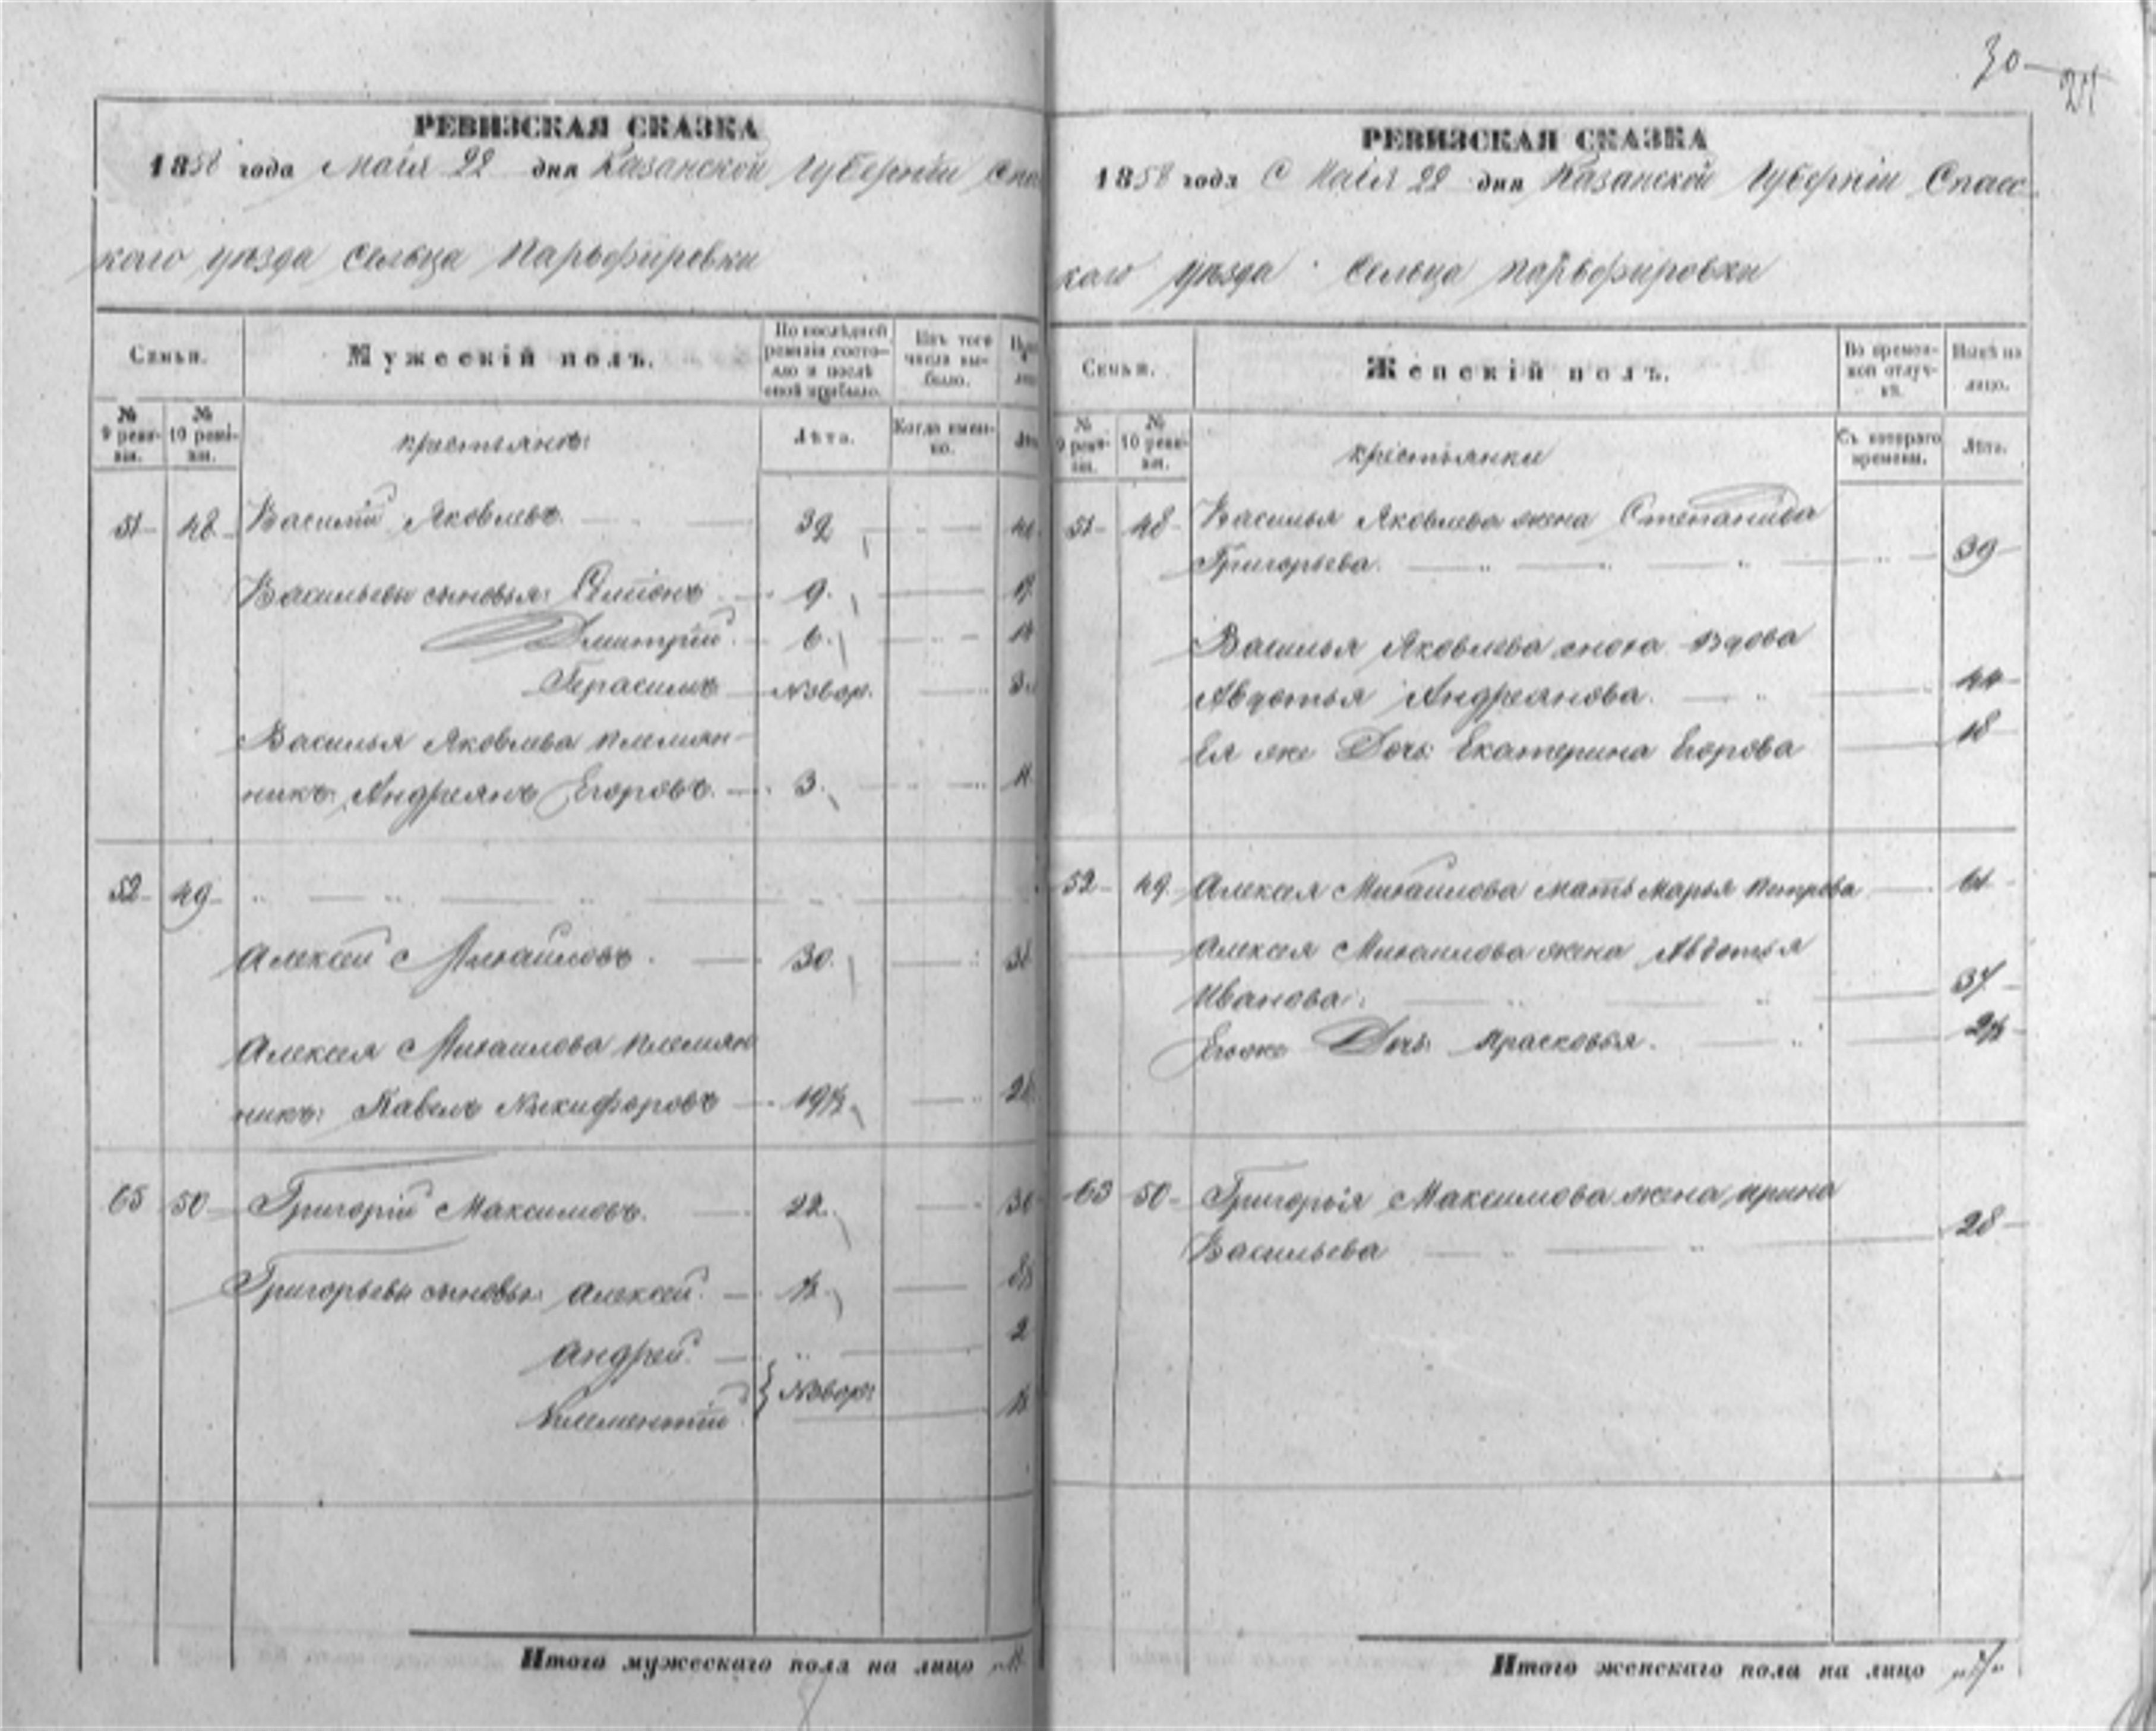 30
РЕВИЗСКАЯ СКАЗКА
1858 года Маія 22 дня Казанской Губерніи Спас
каго уѣзда Сельца Парьфировки
Семьи.
Мужескій полъ.
По послѣдней ревизіи состояло и послѣ оной прибыло.
Изъ того числа выбыло.
№ 9 ревизіи.
№ 10 ревизіи.
крестьяне:
Лѣта.
Когда именно.
51 48 Василій Яковлевъ. 32
Васильевы сыновья: Симіонъ 9.
Дмитрій 6.
Герасимъ Новор. 3
Василья Яковлева племян-
никъ: Андреянъ Егоровъ. 3.
52 49
Алексей Михайловъ. 30.
Алексея Михайлова племян
никъ: Павелъ Никифоровъ 19½
65 50 Григорій Максимовъ. 22. 30
Григорьевы сыновья: Алексей. ½
Андрей. 2
Клементій Новор:
Итого мужескаго пола на лицо
РЕВИЗСКАЯ СКАЗКА
1858 года Маія 22 дня Казанской Губерніи Спасс
каго уѣзда Сельца Парьфировки
Семьи.
Женскій полъ.
Во временной отлучкѣ.
Нынѣ на лицо.
№ 9 ревизіи.
№ 10 ревизіи.
крестьянки
Съ котораго времени.
Лѣта.
51 48 Василья Яковлева жена Степанида
Григорьева. 39
Василья Яковлева сноха вдова
Авдотья Андреянова. 44
Ея же Дочь: Екатерина Егорова 18
52 49 Алексея Михайлова мать Марья Петрова 61
Алексея Михайлова жена Авдотья
Иванова: 37
Его же Дочь: Прасковья. 2½
63 50 Григорья Максимова жена Ирина
Васильева 28
Итого женскаго пола на лицо „7“